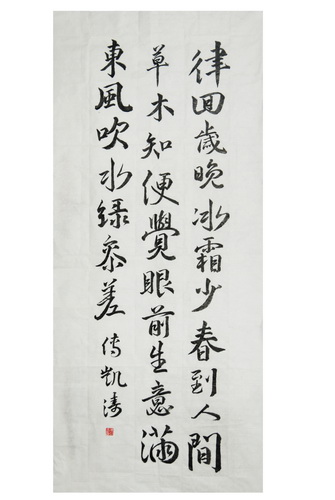 律回歲晚冰霜少春到人間
草木知便覺眼前生意滿
東風吹水綠參差 傅凱濤